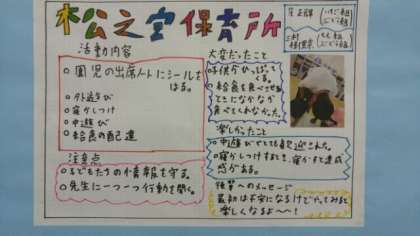 松之宮保育所
活動内容
○園児の出席ノートにシールを
はる。
○外遊び
○寝かしつけ
○中遊び
○給食の配達
注意点
○子どもたちの情報を守る。
○先生に一つ一つ行動を聞く。
大変だったこと
○子供がひっぱって
くる。
○給食を食べさせる
ときになかなか
食べてくれなかった。
楽しかったこと
○中遊びがとても
○寝かしつけするとき、寝かすと達成
感がある。
後輩へのメッセージ
最初は不安になるけど、やってみると
楽しくなるよ〜〜!